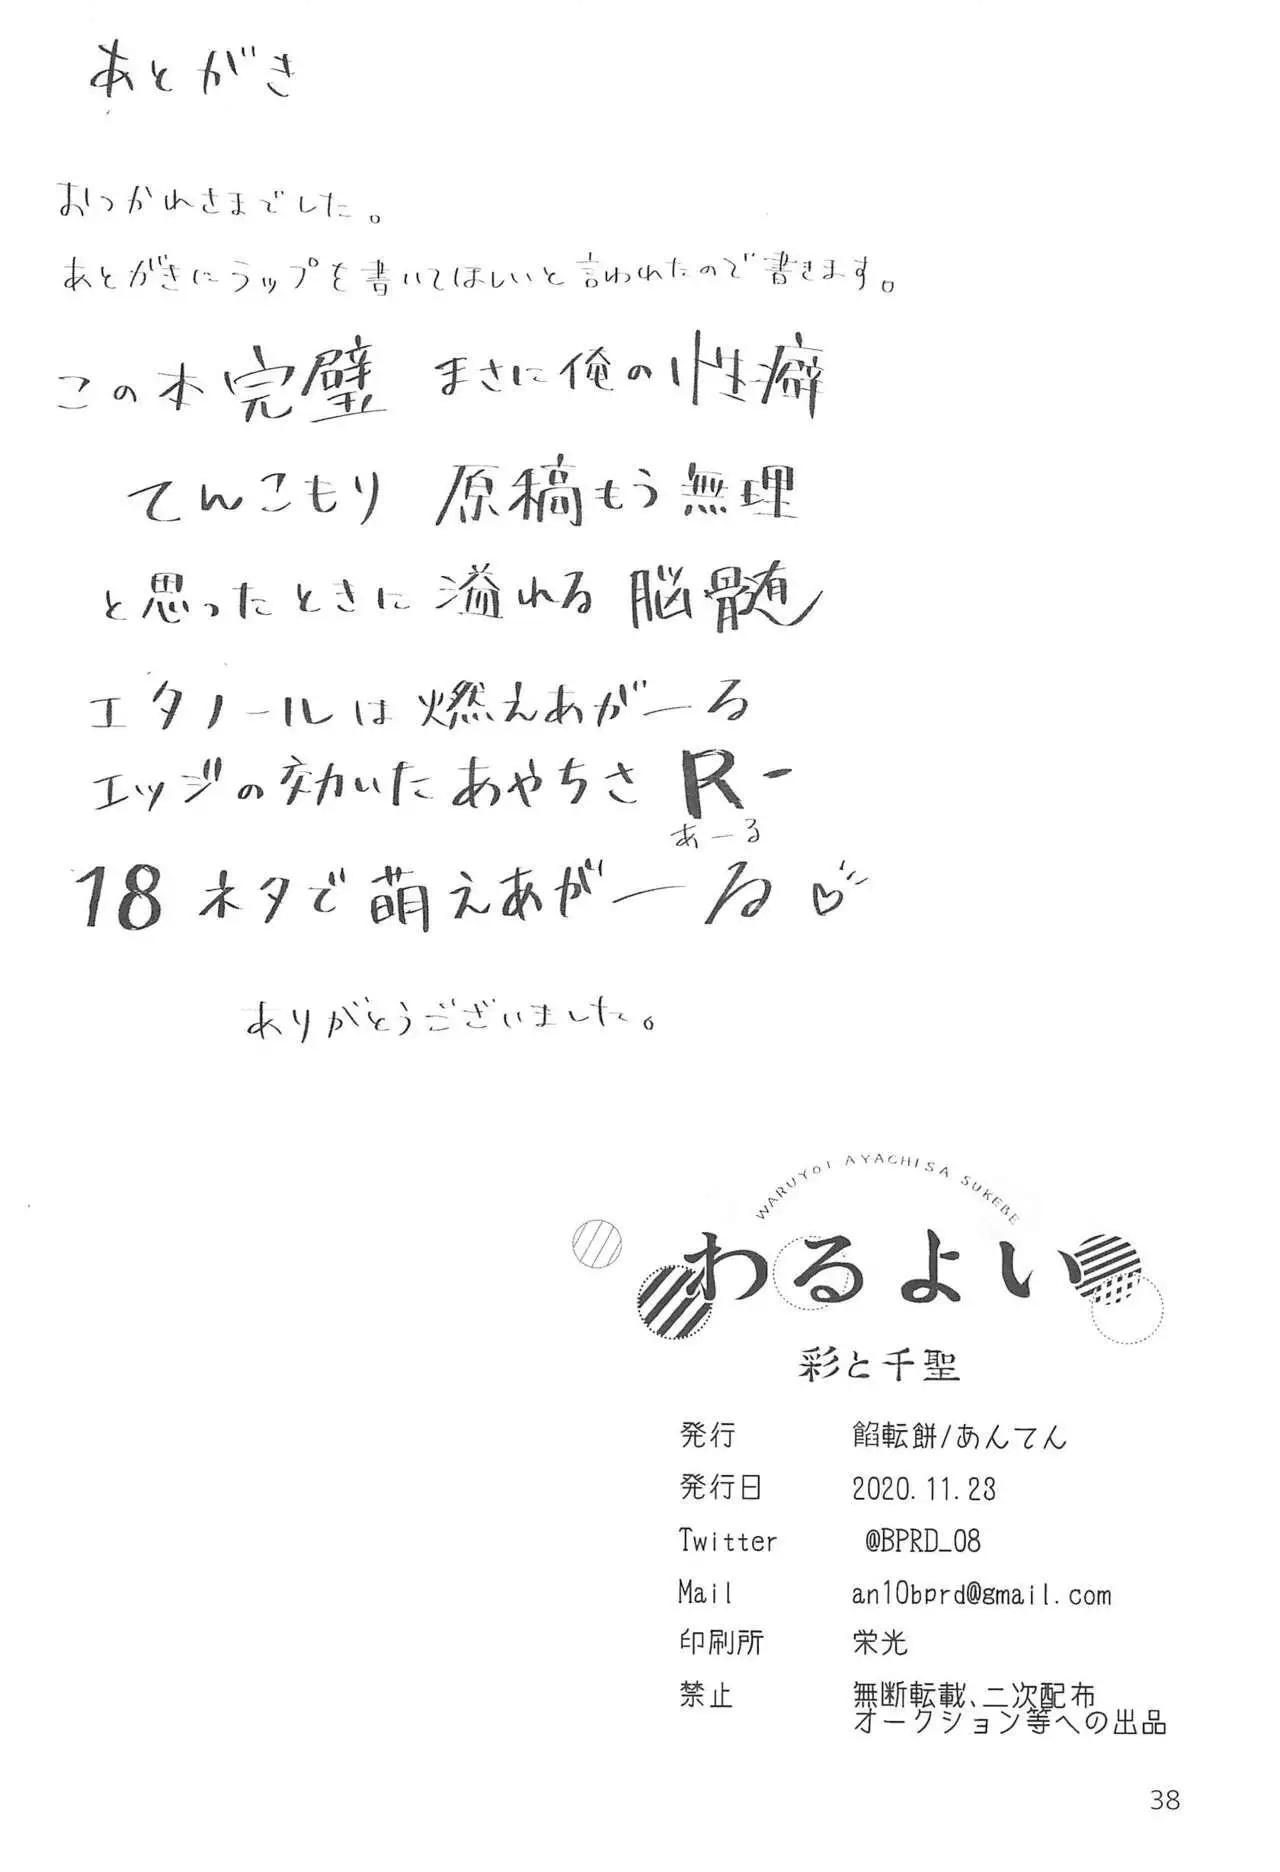 あとがき
おつかれさまでした。
あとがきにラップを書いてほしいと言われたので書きます。
この本完璧 まさに俺の性癖
てんこもり 原稿もう無理
と思ったときに溢れる脳髄
エタノールは燃えあがーる
エッジの効いたあやちさR-
あーる
18ネタで萌えあがーる♡
ありがとうございました。
WARUYOI AYACHISA SUKEBE
わるよい
彩と千聖
発行 餡転餅/あんてん
発行日 2020.11.23
Twitter @BPRD_08
Mail an10bprd@gmail.com
印刷所 栄光
禁止 無断転載、二次配布
オークション等への出品
38